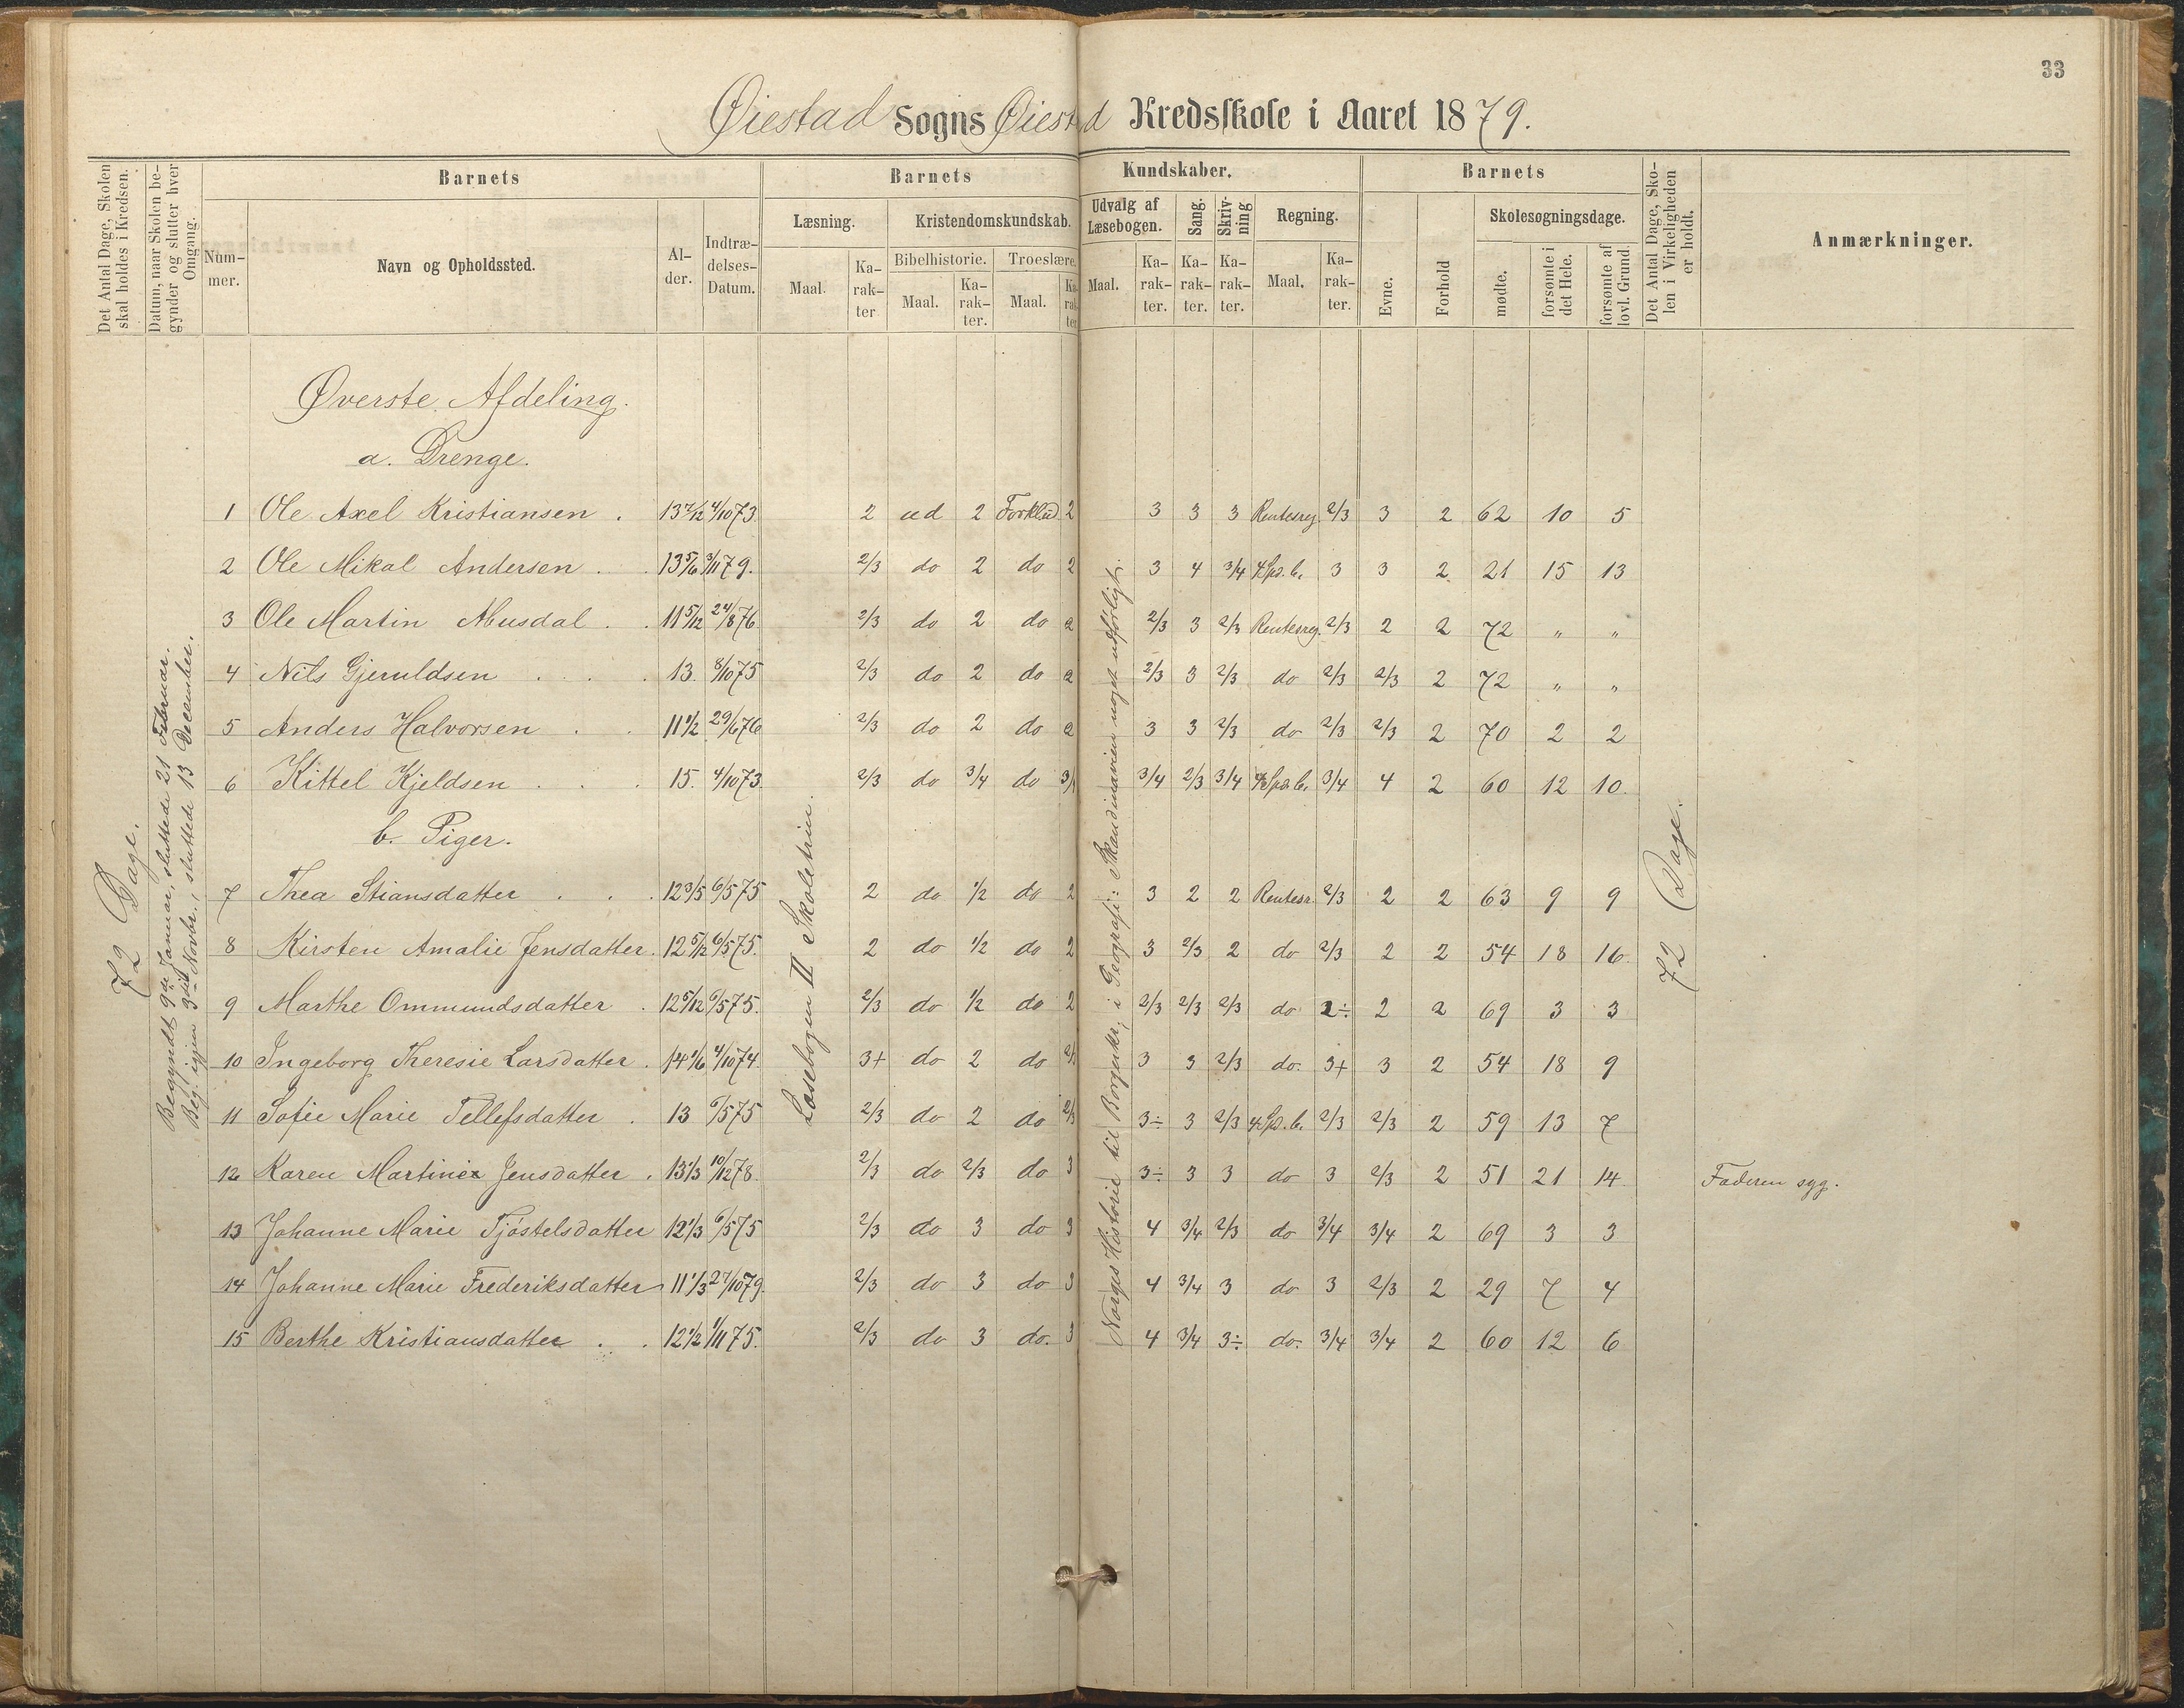 33
Øiestad Sogns Øiestad Kredsskole i Aaret 1879.
Det Antal Dage, Skolen skal holdes i Kredsen.
Datum, naar Skolen begynder og slutter hver Omgang.
Barnets
Nummer.
Navn og Opholdssted.
Alder.
Indtrædelses-Datum.
Barnets Kundskaber.
Læsning.
Maal.
Karakter
Kristendomskundskab.
Bibelhistorie.
Maal.
Karakter.
Troeslære.
Maal.
Karakter
Udvalg af Læsebogen.
Maal.
Karakter.
Sang.
Karakter.
Skrivning
Karakter.
Regning.
Maal.
Karakter.
Barnets
Evne.
Forhold
Skolesøgningsdage.
mødte.
forsømte i det Hele.
forsømte af lovl. Grund.
Det Antal Dage, Skolen i Virkeligheden er holdt.
Anmærkninger.
72 Dage.
Begyndt 9de Januar, sluttede 21 Februar.
Beg. igjen 3die Novbr., sluttede 13 December.
Læsebogen II Skoletrin.
Norges Historie til Borgerkr, i Geografi: Skandinavien noget udførligt.
72 Dage.
Øverste Afdeling.
a. Drenge.
1 Ole Axel Kristiansen . 4/10 73 2 ud 2 Forkl. ud 2 3 3 3 Rentesreg. 2/3 3 2 62 10 5
2 Ole Mikal Andersen . . 13 5/6 3/11 79. 2/3 do 2 do 2 3 4 3/4 3 3 2 21 15 13
3 Ole Martin Musdal . . 11 5/12 24/8 76 2/3 do 2 do 2 2/3 3 2/3 Rentesreg. 2/3 2 2 72 " "
4 Nils Gjeruldsen . . . 13. 8/10 75 2/3 do 2 do 2 2/3 3 2/3 do 2/3 2/3 2 72 " "
5 Anders Halvorsen . . 11 1/2 29/6 76 2/3 do 2 do 2 3 3 2/3 do 2/3 2/3 2 70 2 2
6 Kittel Kjeldsen . . . 15. 4/10 73. 2/3 do 3/4 do 3/4 3/4 2/3 3/4 3/4 4 2 60 12 10.
b. Piger.
7 Thea Stiansdatter . . . 12 3/5 6/5 75 2 do 1/2 do 2 3 2 2 Rentesr. 2/3 2 2 63 9 9
8 Kirsten Amalie Jensdatter. 12 5/12 6/5 75. 2 do 1/2 do 2 3 2/3 2 do 2/3 2 2 54 18 16.
9 Marthe Ommundsdatter . 12 5/12 6/5 75. 2/3 do 1/2 do 2 2/3 2/3 2/3 do 2÷ 2 2 69 3 3
10 Ingeborg Theresie Larsdatter . 14 1/6 4/10 74. 3+ do 2 do 2/3 3 3 2/3 do. 3+ 3 2 54 18 9
11 Sofie Marie Tellefsdatter . 13 6/5 75 2/3 do 2 do 2/3 3÷ 3 2/3 2/3 2/3 2 59 13 7
12 Karen Martine Jensdatter . 13 1/3 10/12 78. 2/3 do 2/3 do 3 3÷ 3 3 do 3 2/3 2 51 21 14 Faderen syg.
13 Johanne Marie Tjøstelsdatter 12 1/3 6/5 75 2/3 do 3 do 3 4 3/4 2/3 do 3/4 3/4 2 69 3 3
14 Johanne Marie Frederiksdatter 11 1/3 27/10 79. 2/3 do 3 do 3 4 3/4 3 do 3 2/3 2 29 7 4
15 Berthe Kristiansdatter . . 12 1/2 1/11 75. 2/3 do 3 do. 3 4 3/4 3÷ do. 3/4 3/4 2 60 12 6